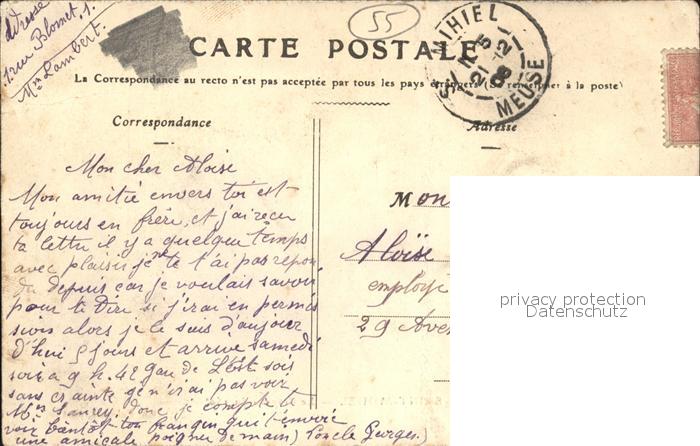 adresse
12 rue Blomet. 1.
Mme Lambert.
55
ST MIHIEL
MEUSE
CARTE POSTALE
La Correspondance au recto n'est pas acceptée par tous les pays étrangers (Se renseigner à la poste)
Correspondance
Adresse
Mon cher Aloïse
Mon amitié envers toi est
toujours en frère, et j'ai reçu
ta lettre il y a quelque temps
avec plaisir je ne te l'ai pas répon
du depuis car je voulais savoir
pour te dire si j'irai en permis
sion alors je le suis d'aujour
d'hui 5 jours et arrive samedi
soir à 9 h. 42 gare de L'Est sois
sans crainte je n'irai pas voir
donc je compte te
voir bientôt ton frangin qui t'envoie
une amicale poignée de main) Georges.)
Mon
Aloïse
employé
29 Aven
privacy protection
Datenschutz